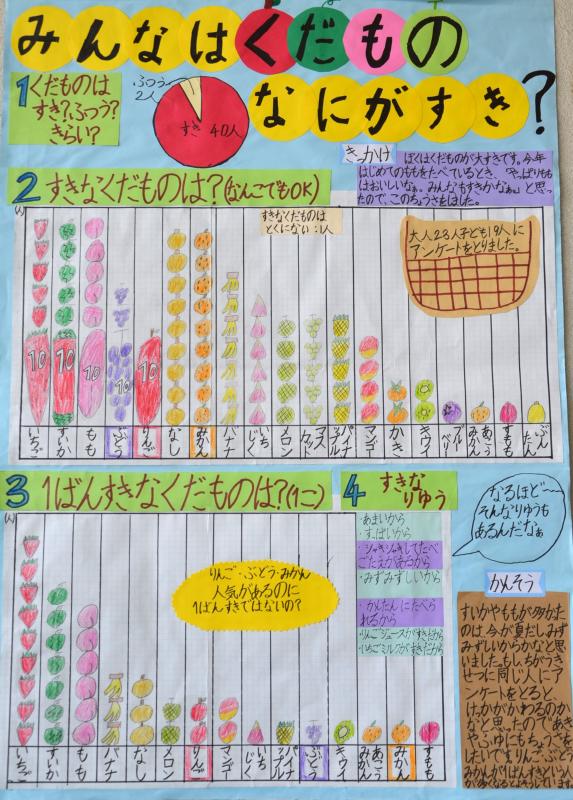 みんなはくだもの
なにがすき?
1 くだものは
すき?ふつう?
きらい?
ふつう
2人
すき 40人
きっかけ
ぼくはくだものが大すきです。今年
はじめてのももをたべているとき、「やっぱりもも
はおいしいなぁ。みんなもすきかなぁ。」と思っ
たので、このちょうさをしました。
2 すきなくだものは?(なんこでもOK)
(人)
すきなくだものは
とくにない:1人
大人23人子ども19人に
アンケートをとりました。
10
10
10
10
10
いちご
すいか
もも
ぶどう
りんご
なし
みかん
バナナ
いちじく
メロン
マスカット
パイナップル
マンゴー
かき
キウイ
ブルーベリー
あまなつみかん
すもも
ぶんたん
3 1ばんすきなくだものは?(1こ)
(人)
りんご・ぶどう・みかん
人気があるのに
1ばんすきではないの?
いちご
すいか
もも
バナナ
なし
メロン
りんご
マンゴー
いちじく
パイナップル
ぶどう
キウイ
みかん
すもも
4 すきな
りゆう
・あまいから
・すっぱいから
・シャキシャキしてたべ
ごたえがあるから
・みずみずしいから
・かんたんにたべら
れるから
・りんごジュースがすきだから
・いちごミルクがすきだから
なるほど〜
そんなりゆうも
あるんだなぁ
かんそう
すいかやももが多かった
のは、今が夏だしみず
みずしいからかなと思
いました。もし、ちがうき
せつに同じ人に
アンケートをとると、
けっかがかわるのか
なと思ったので、あき
やふゆにもちょうさを
したいです。りんご・ぶどう
みかんが1ばんすきという人